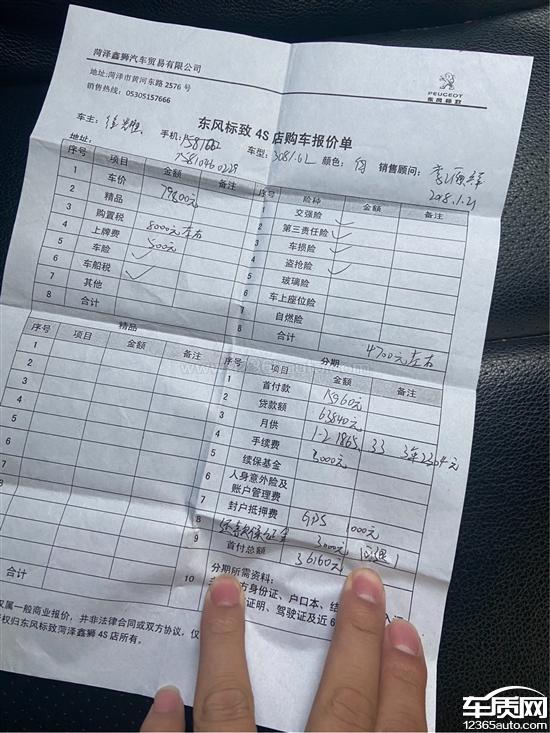 菏泽鑫狮汽车贸易有限公司
地址:菏泽市黄河东路 2576 号
销售热线: 05305157666
PEUGEOT
东风标致
东风标致 4S 店购车报价单
车主: 手机: 车型: 3081.6L 颜色: 白 销售顾问:
15810460229 2018.1.21
序号 项目 金额 备注
1 车价 79800元
2 精品
3 购置税 8000元左右
4 上牌费 500元
5 车险 ✓
6 车船税 ✓
7 其他
8 合计
险种 金额 备注
1 交强险 ✓
2 第三责任险 ✓
3 车损险 ✓
4 盗抢险 ✓
5 玻璃险
6 车上座位险
7 自燃险
8 合计 4700元左右
精品
序号 项目 金额 备注
1
2
3
4
5
6
合计
分期
序号 项目 金额 备注
1 首付款 15960元
2 贷款额 63840元
3 月供 1-2 1865 33 3年2304元
4 手续费 3000元
5 续保基金
6 人身意外险及
账户管理费
7 封户抵押费 GPS 1000元
8 还款保证金 3000元 (可退)
9 首付总额 36160元
10 分期所需资料:
方身份证、户口本、结
证明、驾驶证及近 6
仅属一般商业报价，并非法律合同或双方协议，仅
权归东风标致菏泽鑫狮 4S 店所有。
www.12365auto.com
车质网
12365auto.com